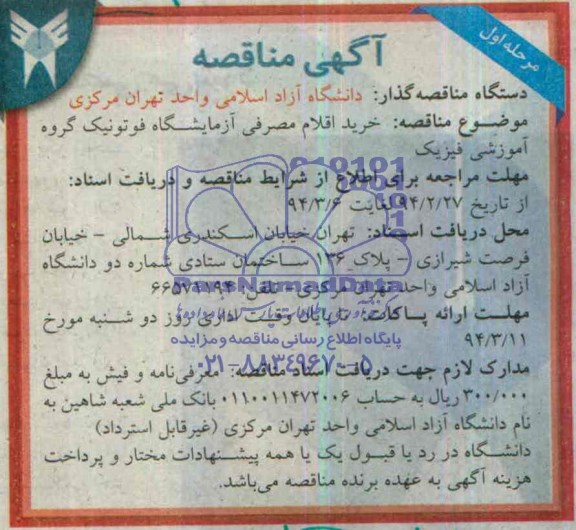 مرحله اول
آگهی مناقصه
دستگاه مناقصه‌گذار: دانشگاه آزاد اسلامی واحد تهران مرکزی
موضوع مناقصه: خرید اقلام مصرفی آزمایشگاه فوتونیک گروه
آموزشی فیزیک
مهلت مراجعه برای اطلاع از شرایط مناقصه و دریافت اسناد:
از تاریخ ۹۴/۲/۲۷ لغایت ۹۴/۳/۶
محل دریافت اسناد: تهران خیابان اسکندری شمالی - خیابان
فرصت شیرازی - پلاک ۱۳۶ ساختمان ستادی شماره دو دانشگاه
آزاد اسلامی واحد تهران مرکزی - تلفن:
مهلت ارائه پاکات: تا پایان وقت اداری روز دو شنبه مورخ
۹۴/۳/۱۱
پایگاه اطلاع رسانی مناقصه و مزایده
۰۲۱-۸۸۳۴۹۶۷۰-۵
مدارک لازم جهت دریافت اسناد مناقصه: معرفی‌نامه و فیش به مبلغ
۳۰۰/۰۰۰ ریال به حساب ۰۱۱۰۰۱۱۴۷۲۰۰۶ بانک ملی شعبه شاهین به
نام دانشگاه آزاد اسلامی واحد تهران مرکزی (غیرقابل استرداد)
دانشگاه در رد یا قبول یک یا همه پیشنهادات مختار و پرداخت
هزینه آگهی به عهده برنده مناقصه می‌باشد.